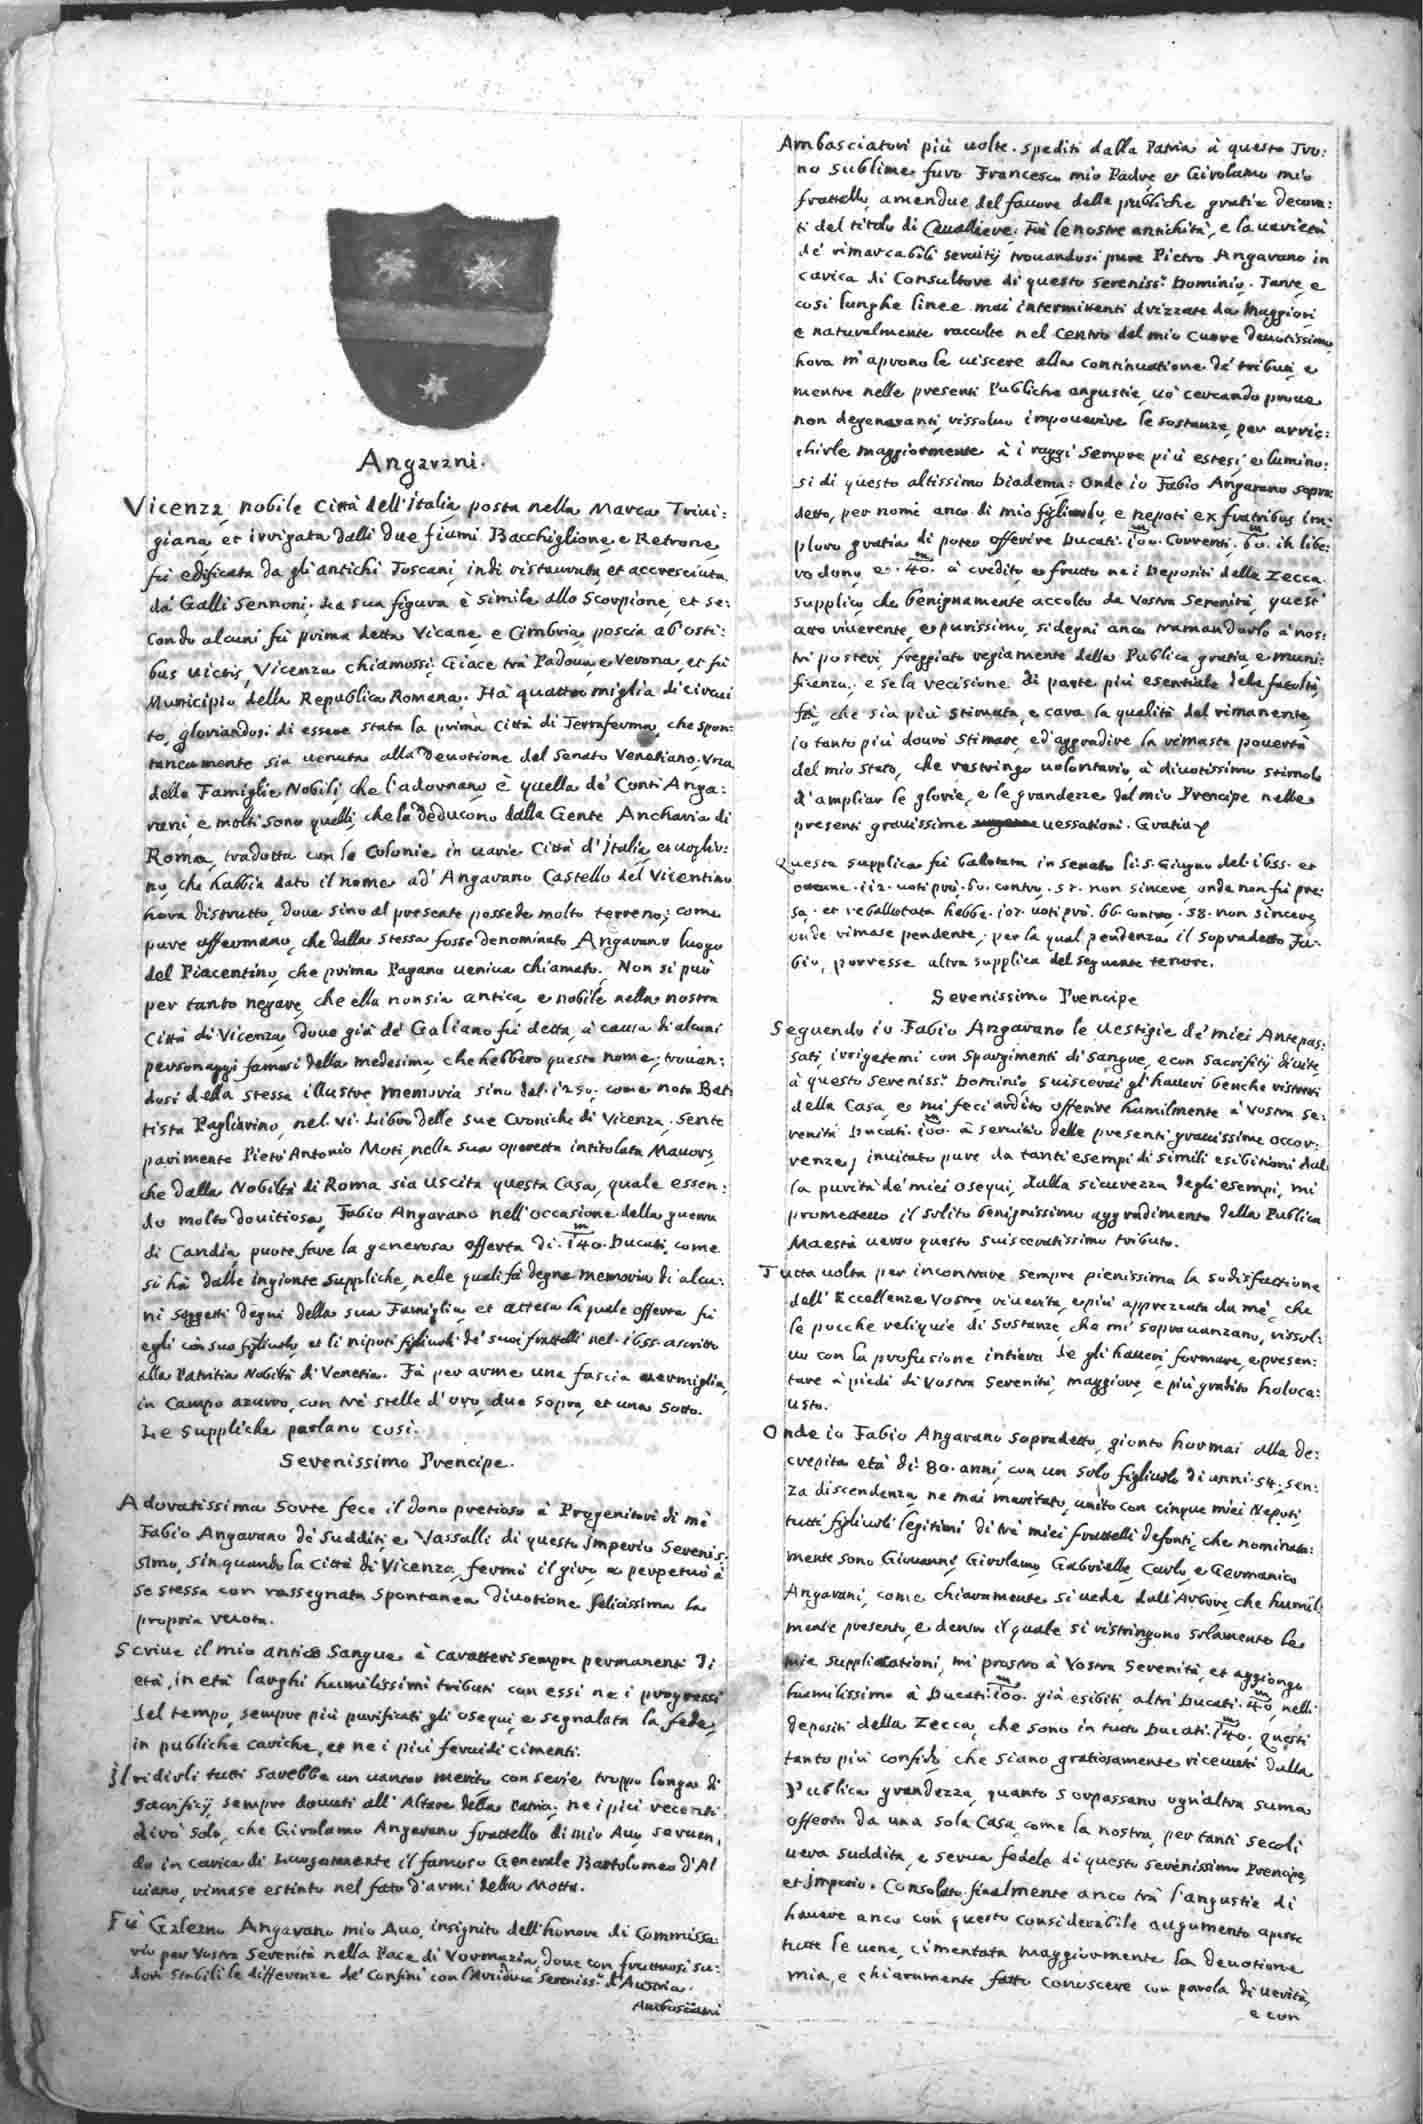 Angarani.
Vicenza, nobile Città dell'Italia, posta nella Marca Trivi:
giana, et irrigata dalli due fiumi Bacchiglione, e Retrone,
fù edificata da gli antichi Toscani, indi ristaurata, et accresciuta
da' Galli Sennoni. La sua figura è simile allo Scorpione, et se:
condo alcuni fù prima detta Vicane, e Cimbria, poscia ab' osti:
bus victis, Vicenza chiamossi. Giace trà Padova, e Verona, et fù
Municipio della Republica Romana. Hà quattro miglia di circui
to, gloriandosi di essere stata la prima Città di Terraferma, che spon:
taneamente sia venuta alla Devotione del Senato Venetiano. Una
delle Famiglie Nobili, che l'adornano è quella de' Conti Anga:
rani e molti sono quelli, che la deducono dalla Gente Ancharia di
Roma, tradotta con le Colonie in varie Città d'Italia, et voglio:
no, che habbia dato il nome ad' Angarano Castello del Vicentino
hora distrutto, dove sino al presente possede molto terreno; come
pure affermano, che dalla stessa fosse denominato Angarano luogo
del Piacentino, che prima Pagano veniva chiamato. Non si può
per tanto negare, che ella non sia antica, e nobile nella nostra
Città di Vicenza, dove già de' Galiano fù detta, à causa di alcuni
personaggi famosi della medesima, che hebbero questo nome; trovan:
dosi della stessa illustre memoria sino del 1250. come nota Bat
tista Pagliarino, nel VI. Libro delle sue Croniche di Vicenza. Sente
parimente Pietr'Antonio Moti, nella sua operetta intitolata Mavors,
che dalla Nobiltà di Roma sia uscita questa Casa, quale essen:
do molto dovitiosa, Fabio Angarano nell'occasione della guerra
di Candia puote fare la generosa offerta di 140 m Ducati, come
si hà dalle ingionte suppliche, nelle quali fà degna memoria di alcu:
ni soggetti degni della sua Famiglia, et attesa la quale offerta fù
egli con suo figliuolo, et li nipoti figliuoli de' suoi fratelli nel 1655 ascritto
alla Patritia Nobiltà di Venetia. Fà per arme una fascia vermiglia,
in Campo azurro, con trè stelle d'oro, due sopra, et una sotto.
Le Suppliche parlano così.
Serenissimo Prencipe.
Adoratissima sorte fece il dono pretioso à Progenitori di mè
Fabio Angarano de' Sudditi, e Vassalli di questo Imperio Serenis:
simo, sin quando la Città di Vicenza, fermò il giro, e perpetuò à
se stessa con rassegnata spontanea divotione felicissima la
propria ruota.
Scrive il mio antico Sangue à caratteri sempre permanenti di
età, in età larghi humilissimi tributi con essi ne i progressi
del tempo, sempre più purificati gli osequi, e segnalata la fede,
in publiche cariche, et ne i più fervidi cimenti.
Il ridirli tutti sarebbe un vantar merito con serie troppo longa di
sacrificij, sempre dovuti all'Altare della Patria; ne i più recenti
dirò solo, che Girolamo Angarano fratello di mio Avo, serven,
do in carica di Luogotenente il famoso Generale Bartolomeo d'Al
viano, rimase estinto nel fatto d'armi della Motta.
Fù Galeazo Angarano mio Avo, insignito dell'honore di Commissa:
rio per Vostra Serenità nella Pace di Vormazia, dove con fruttuosi su:
dori stabilì le differenze de' Confini con l'Arciduca Sereniss.º d'Austria.
Ambasciatori
Ambasciatori più volte spediti dalla Patria à questo Tro:
no sublime furo Francesco mio Padre et Girolamo mio
fratello, amendue del favore delle publiche gratie decora:
ti del titolo di Cavalliere. Trà le nostre antichità, e la varietà
de' rimarcabili servitij trovandosi pure Pietro Angarano in
carica di Consultore di questo Sereniss.º Dominio. Tante, e
cosi lunghe linee mai intermittenti drizzate da Maggiori
e naturalmente raccolte nel Centro del mio Cuore devotissimo
hora m'aprono le viscere alla continuatione de' tributi, e
mentre nelle presenti Publiche angustie, vò cercando prove
non degeneranti, rissolvo impoverire le sostanze, per arric:
chirle maggiormente à i raggi sempre più estesi, e lumino:
si di questo altissimo Diadema: Onde io Fabio Angarano sopra:
detto, per nome anco di mio figliuolo, e nepoti ex fratribus im:
ploro gratia di poter offerire Ducati 100 m Correnti. 60 m in libe:
ro dono, e 40 m à credito, e frutto nei Depositi della Zecca.
Supplico che benignamente accolto da Vostra Serenità, quest'
atto riverente, e purissimo, si degni anco tramandarlo à nos:
tri posteri, freggiato regiamente della Publica gratia, e muni:
ficenza; e se la recisione di parte più esentiale delle facoltà,
fà, che sia più stimata, e cara la qualità del rimanente,
io tanto più dovrò stimare, ed'aggradire la rimasta povertà
del mio stato, che restringo volontario, à divotissimo stimolo
d'ampliar le glorie, e le grandezze del mio Prencipe nelle
presenti gravissime vessationi. Gratia
Questa supplica fù ballotata in Senato li 5. Giugno del 1655. et
ottenne 112. voti prò. 60. contro. 57. non sincere, onde non fù pre:
sa. et reballotata hebbe 107. voti prò. 66. contro. 58. non sincere,
onde rimase pendente; per la qual pendenza il sopradetto Fa:
bio, porresse altra supplica del seguente tenore.
Serenissimo Prencipe
Seguendo io Fabio Angarano le vestigie de' miei Antepas:
sati, irrigatemi con spargimenti di sangue, e con sacrifitij di vite,
à questo Sereniss.º Dominio, sviscerai gl'haveri benche ristretti
della Casa, e mi feci ardito offerire humilmente à Vostra Se:
renità Ducati 100 m à servitio delle presenti gravissime occor:
renze, invitato pure da tanti esempi di simili esibitioni dal
la purità de' miei osequi, dalla sicurezza degli esempi, mi
promettevo il solito benignissimo aggradimento della Publica
Maestà verso questo svisceratissimo tributo.
Tutta volta per incontrare sempre pienissima la sodisfattione
dell'Eccellenze Vostre, riverita, e più apprezzata da mè, che
le pocche reliquie di sostanze, che mi sopravanzano, rissol:
vo con la profusione intiera de gli haveri formare, e presen:
tare à piedi di Vostra Serenità, maggiore, e più gradito holoca:
usto.
Onde io Fabio Angarano sopradetto, gionto hormai alla de:
crepita età di 80. anni, con un solo figliuolo di anni 54. sen:
za discendenza, ne mai maritato, unito con cinque miei Nepoti,
tutti figliuoli legitimi di trè miei fratelli defonti, che nominata:
mente sono Giovanni, Girolamo, Gabrielle, Carlo, e Germanico
Angarani, come chiaramente si vede dall'Arbore, che humil:
mente presento, e dentro il quale si ristringono solamente le
mie supplicationi, mi prostro à Vostra Serenità, et aggiongo
humilissimo à Ducati 100 m già esibiti, altri Ducati 40 m nelli
depositi della Zecca, che sono in tutto Ducati 140 m. Questi
tanto più confido, che siano gratiosamente ricevuti dalla
Publica grandezza, quanto sorpassano ogn'altra suma
offerta da una sola Casa, come la nostra, per tanti secoli
vera suddita, e serva fedele di questo serenissimo Prencipe,
et Imperio. Consolato finalmente anco trà l'angustie di
havere anco con questo considerabile augumento aperte
tutte le vene, cimentata maggiormente la devotione
mia, e chiaramente fatto conoscere con parola di verità,
e con